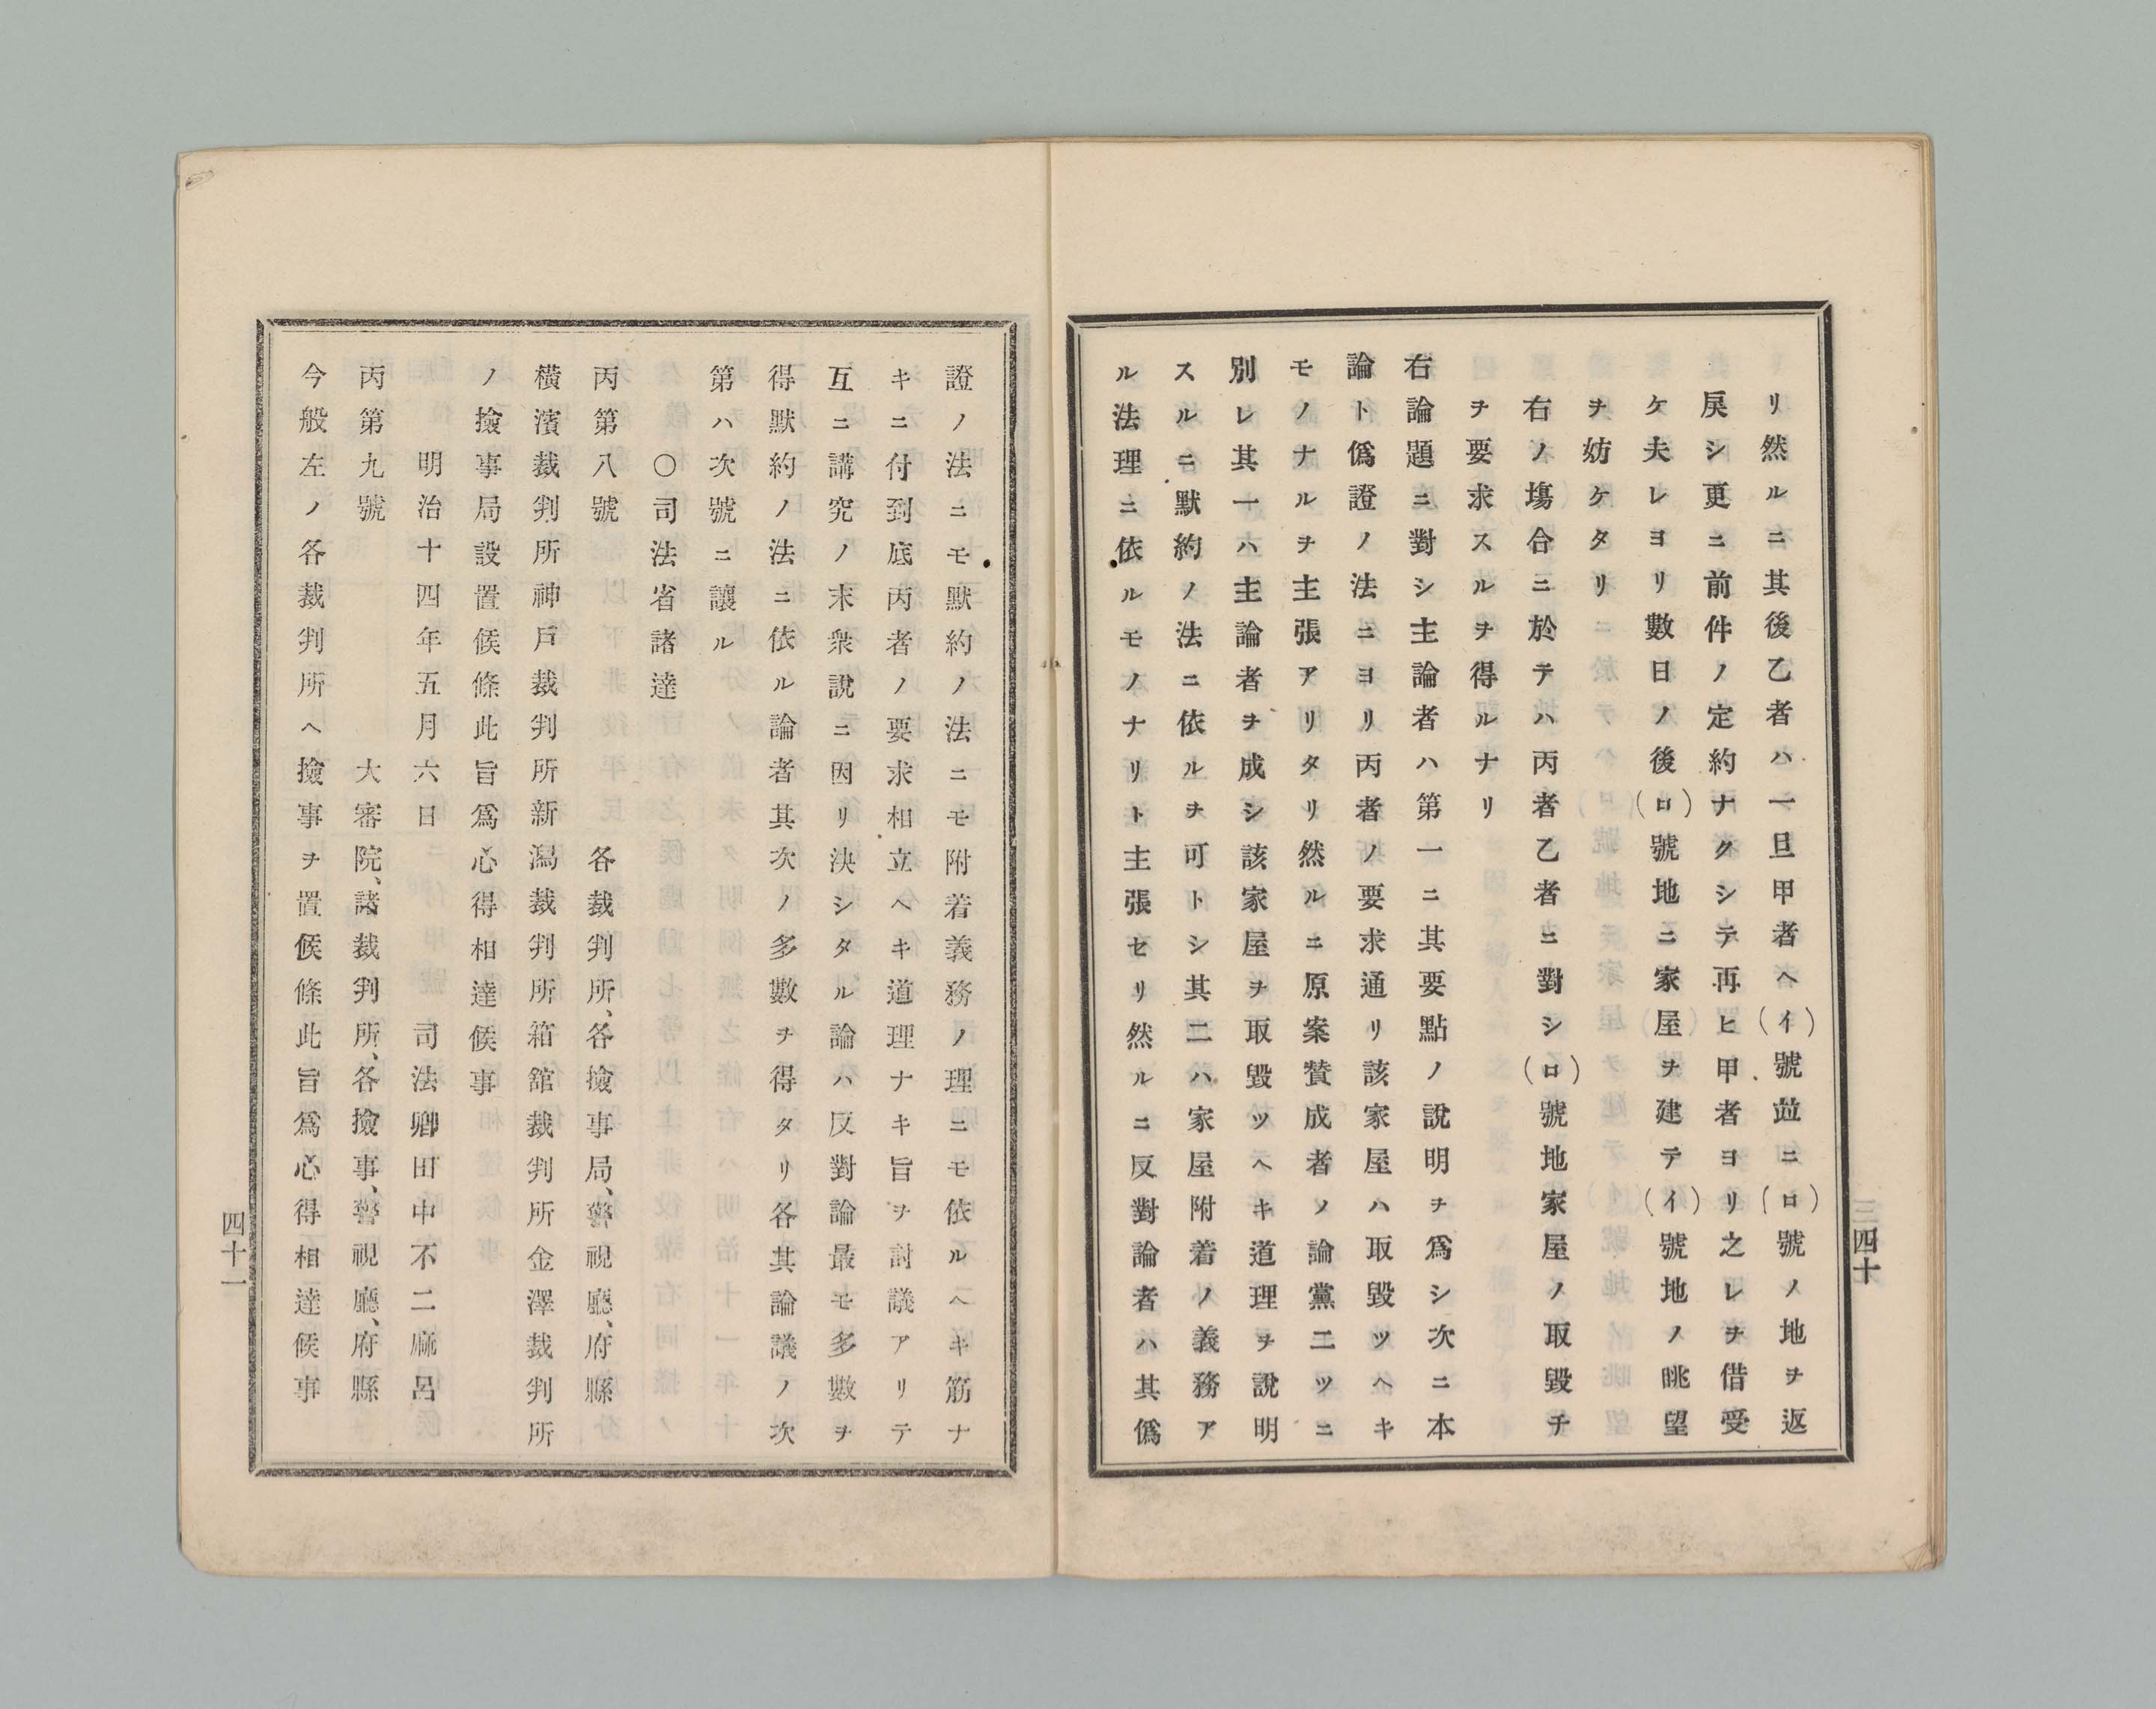 リ然ルニ其後乙者ハ一旦甲者ヘ(イ)號並ニ(ロ)號ノ地ヲ返
戻シ更ニ前件ノ定約ナクシテ再ヒ甲者ヨリ之レヲ借受
ケ夫レヨリ數日ノ後(ロ)號地ニ家屋ヲ建テ(イ)號地ノ眺望
ヲ妨ケタリ
右ノ塲合ニ於テハ丙者乙者ニ對シ(ロ)號地家屋ノ取毀チ
ヲ要求スルヲ得ルナリ
右論題ニ對シ主論者ハ第一ニ其要點ノ說明ヲ爲シ次ニ本
論ト僞證ノ法ニヨリ丙者ノ要求通リ該家屋ハ取毀ツヘキ
モノナルヲ主張アリタリ然ルニ原案賛成者ノ論黨二ツニ
別レ其一ハ主論者ヲ成シ該家屋ヲ取毀ツヘキ道理ヲ說明
スルニ默約ノ法ニ依ルヲ可トシ其二ハ家屋附着ノ義務ア
ル法理ニ依ルモノナリト主張セリ然ルニ反對論者ハ其僞
四十
證ノ法ニモ默約ノ法ニモ附着義務ノ理ニモ依ルヘキ筋ナ
キニ付到底丙者ノ要求相立ヘキ道理ナキ旨ヲ討議アリテ
互ニ講究ノ末衆說ニ因リ決シタル論ハ反對論最モ多數ヲ
得默約ノ法ニ依ル論者其次ノ多數ヲ得タリ各其論議ノ次
第ハ次號ニ讓ル
○司法省諸達
丙第八號 各裁判所、各撿事局、警視廳、府縣
橫濱裁判所神戶裁判所新潟裁判所箱舘裁判所金澤裁判所
ノ撿事局設置候條此旨爲心得相達候事
明治十四年五月六日 司法卿田中不二麻呂
丙第九號 大審院、諸裁判所、各撿事、警視廳、府縣
今般左ノ各裁判所ヘ撿事ヲ置候條此旨爲心得相達候事
四十一